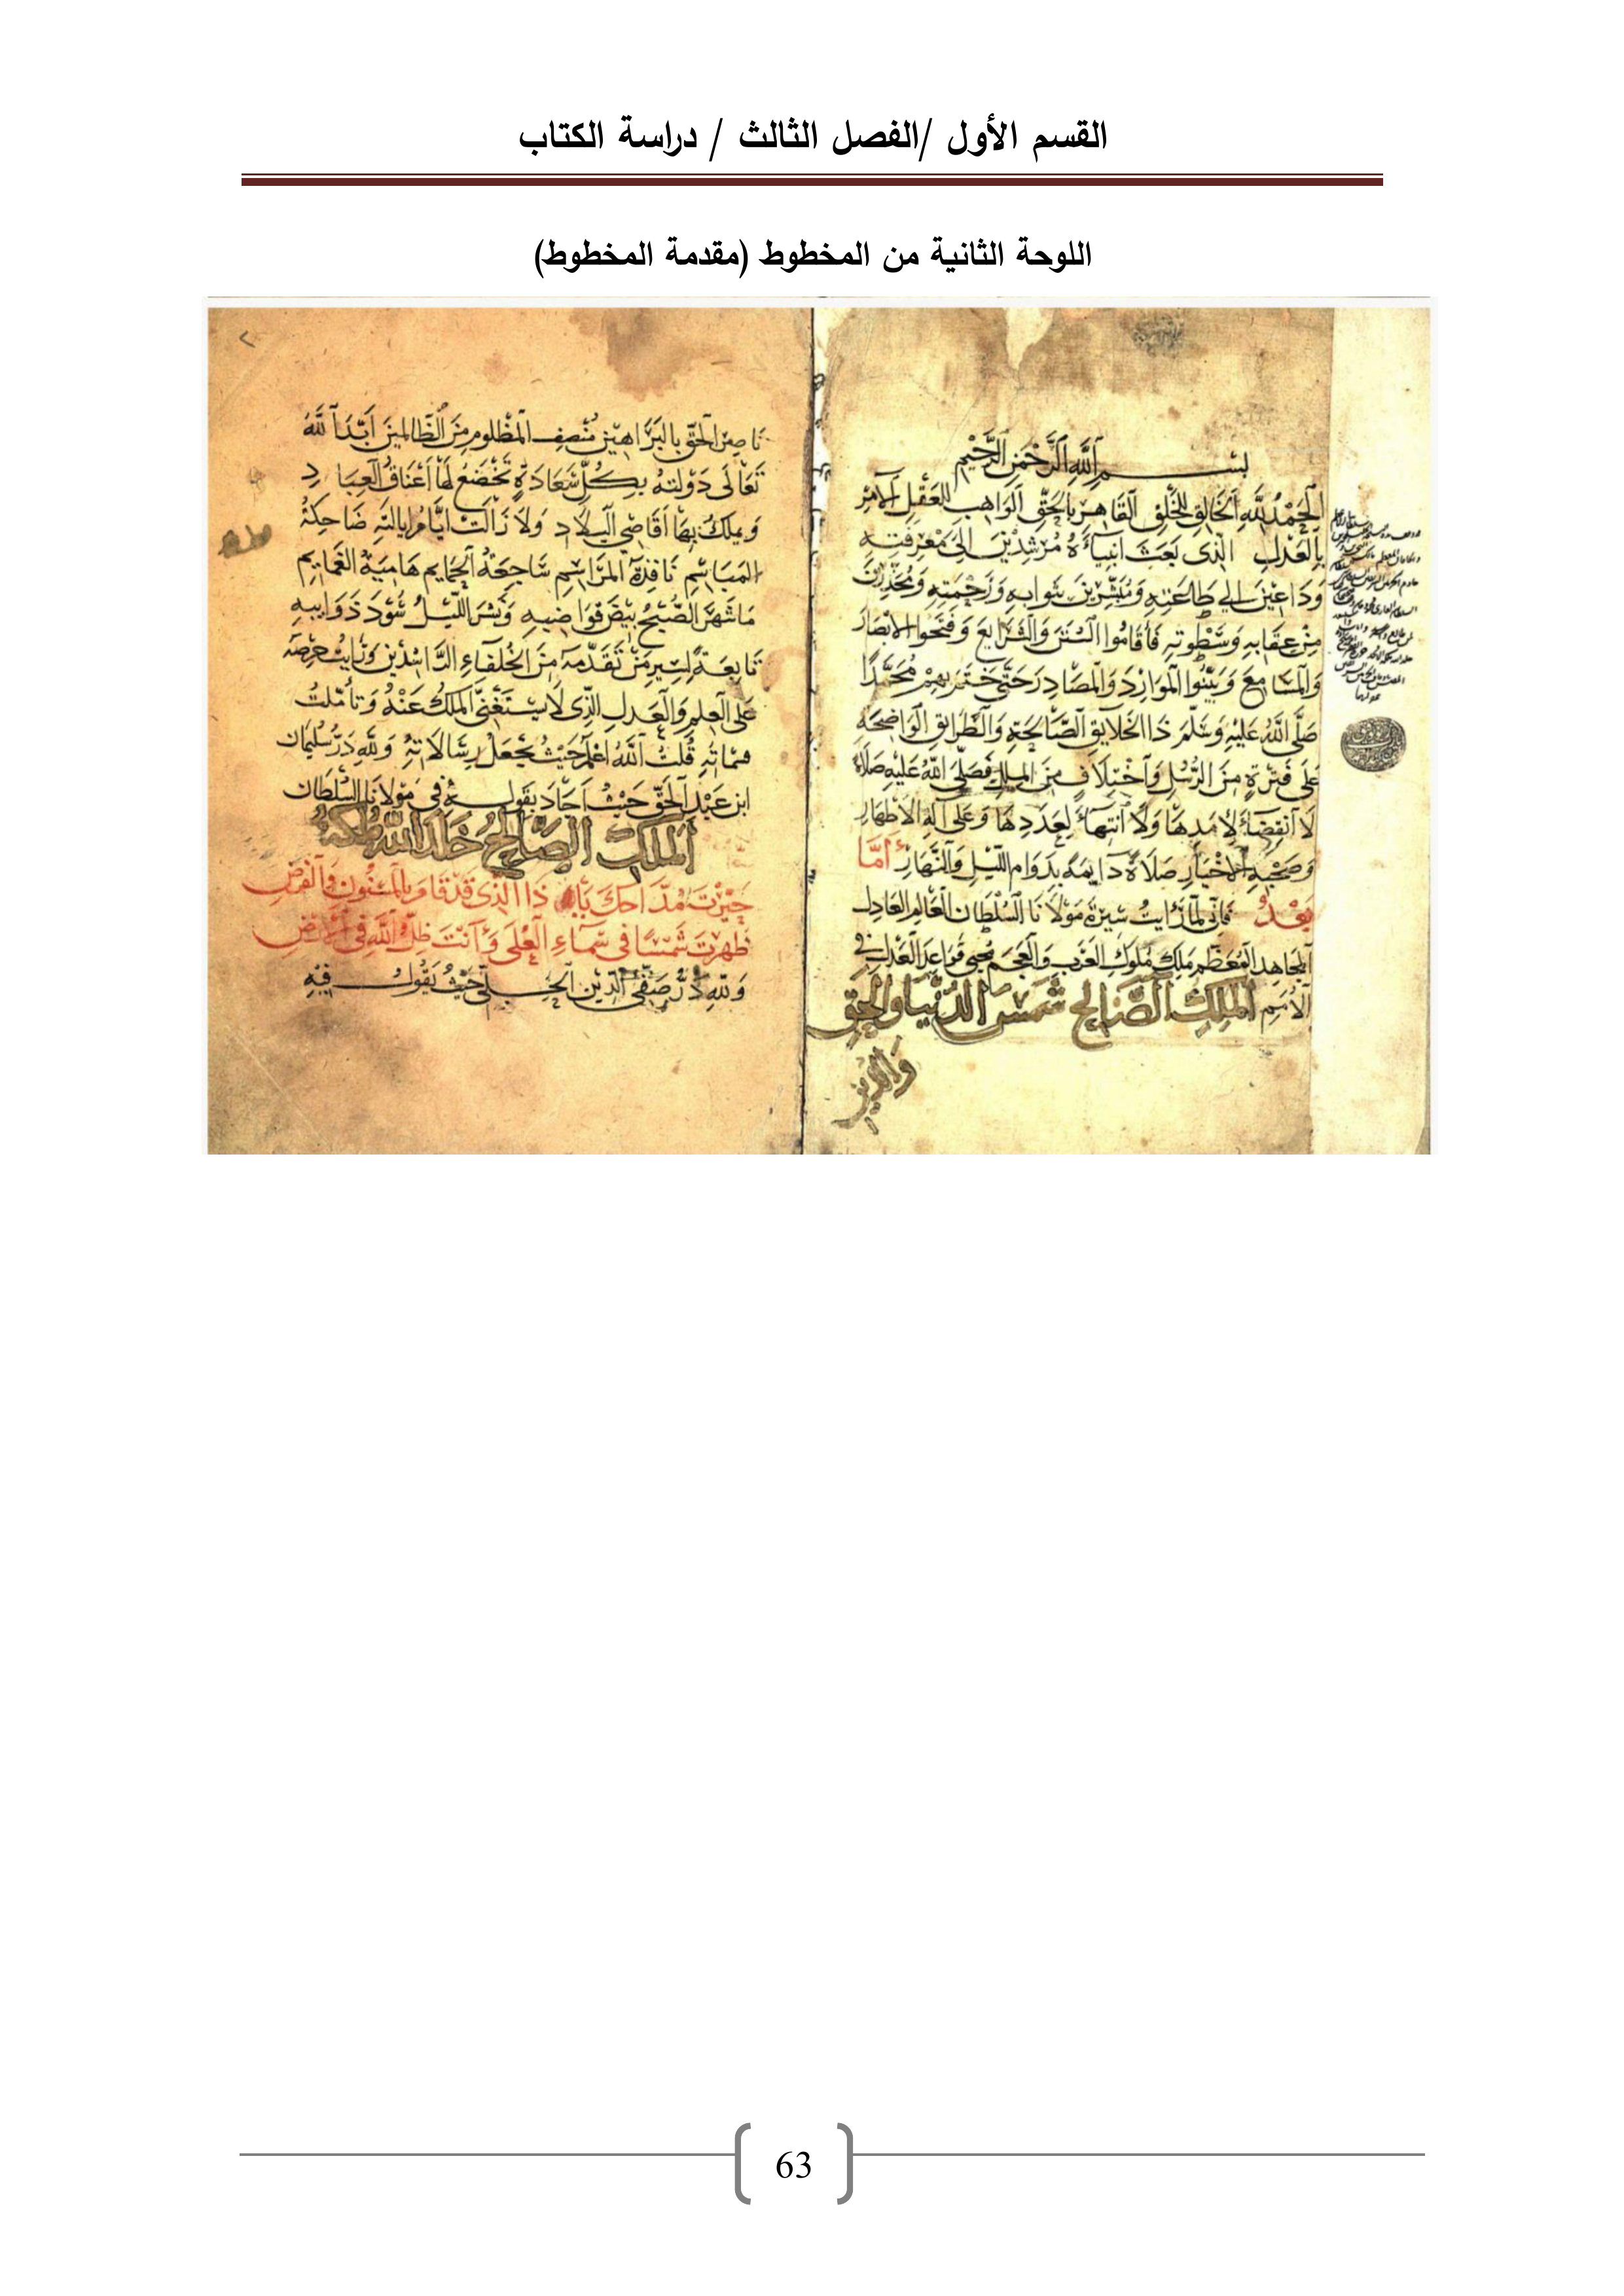 القسم الأول /الفصل الثالث / دراسة الكتاب
اللوحة الثانية من المخطوط (مقدمة المخطوط)
بسم الله الرحمن الرحيم
الحمد لله الخالق للخلق القاهر بالحق الواهب للعقل الآمر
بالعدل الذى بعث انبياءه مرشدين الى معرفته
وداعين الى طاعته ومبشرين بثوابه ورحمته ومحذرين
من عقابه وسطوته فأقاموا السنن والشرايع وفتحوا الابصار
والمسامع وبينوا الموارد والمصادر حتى ختم بهم محمدا
صلى الله عليه وسلم ذا الخلايق الصالحة والطرايق الواضحة
على فترة من الرسل واختلاف من الملل فصلى الله عليه صلاة
لا انقضاء لامدها ولا انتهاء لعددها وعلى اله الاطهار
وصحبه الاخيار صلاة دايمة بدوام الليل والنهار أما
بعد فانى لما رايت سيرة مولانا السلطان العالم العادل
المجاهد المعظم ملك ملوك العرب والعجم محيى قواعد العدل فى
الامم الملك الصالح شمس الدنيا والحق
والدين
ناصر الحق بالبراهين منصف المظلوم من الظالمين ابد الله
تعالى دولته بكل سعادة تخضع لها اعناق العباد
ويملك بها اقاصي البلاد ولا زالت ايام ايالته ضاحكة
المباسم نافذة المراسم ساجعة الحمايم هامية الغمايم
ما شهر الصبح بيض قواضبه ونشر الليل سود ذوايبه
تابعة لسير من تقدمه من الخلفاء الراشدين ورايت حرصه
على العلم والعدل الذى لا يستغنى الملك عنه وتأملت
قلت الله اعلم حيث يجعل رسالاته ولله در سليمان
ابن عبد الحق حيث اجاد بقوله فى مولانا السلطان
الملك الصالح خلد الله ملكه
ذا الذى قد قام بالمسنون والفرض
ظهرت شمسا فى سماء العلى وأنت ظل الله فى الأرض
ولله در صفى الدين الحلى حيث يقول فيه
63